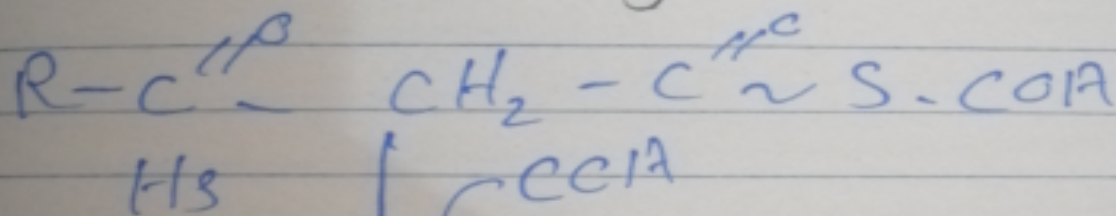 R-C=O - CH₂ - C=O ~ S. COA
HS COA